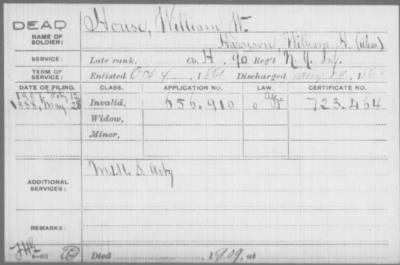 DEAD
House, William W.
NAME OF SOLDIER:
Harrison, William H. (alias)
SERVICE:
Late rank, Co. H, 90 Reg't N.Y. Inf.
TERM OF SERVICE:
Enlisted Oct 4 1861 Discharged
DATE OF FILING. CLASS. APPLICATION NO. LAW. CERTIFICATE NO.
1888, May 28 Invalid, 656.910 723.464
Widow,
Minor,
ADDITIONAL SERVICES:
U.S. Arty
REMARKS:
Died 1909, at